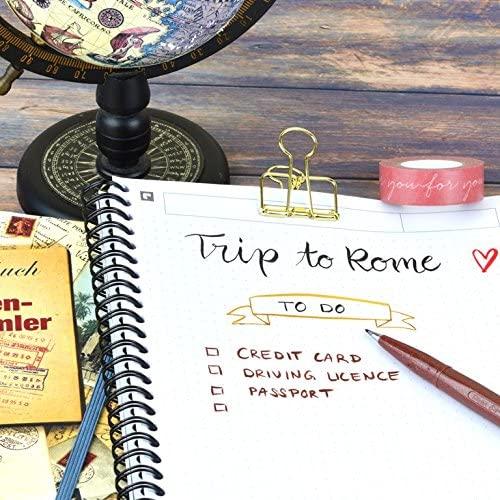 CAPRICORNO
you · for · yo
Trip to Rome
TO DO
CREDIT CARD
DRIVING LICENCE
PASSPORT
uch
en-
mler